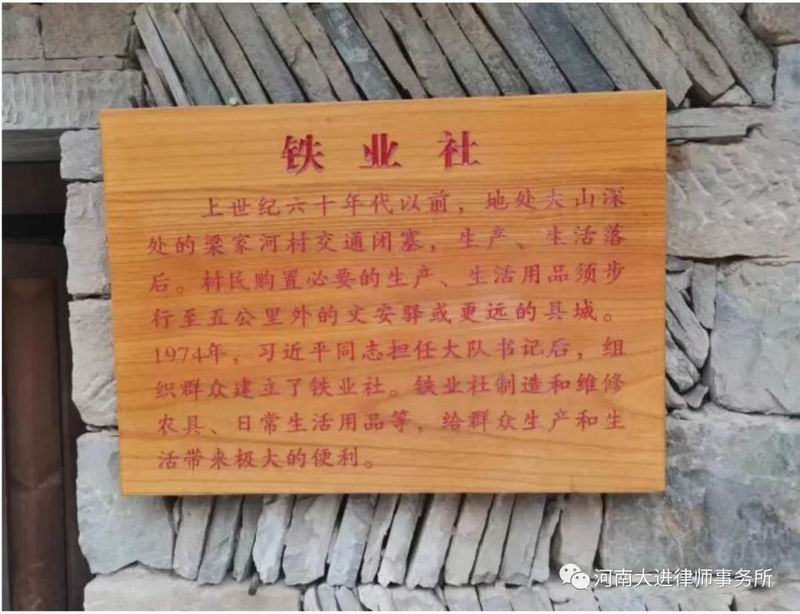 铁业社
上世纪六十年代以前，地处大山深
处的梁家河村交通闭塞，生产、生活落
后。村民购置必要的生产、生活用品须步
行至五公里外的文安驿或更远的县城。
1974年，习近平同志担任大队书记后，组
织群众建立了铁业社。铁业社制造和维修
农具、日常生活用品等，给群众生产和生
活带来极大的便利。
河南大进律师事务所